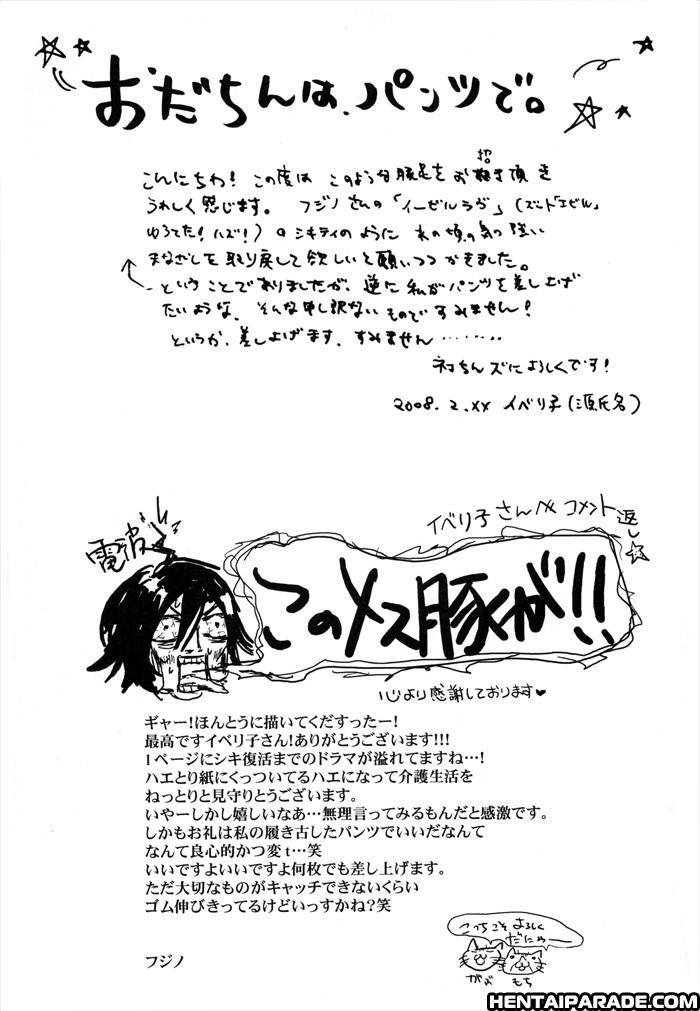 おだちんは、パンツで。
こんにちわ! この度は このような豚足をお招き頂き
うれしく感じます。 フジノさんの「イーゼルラヴ」
シキティのように あの頃の気の強い
まなざしを取り戻して欲しいと願いつつかきました。
ということでありましたが、逆に私がパンツを差し上げ
たいような、そんな申し訳ないものですみません!
というか、差し上げます、すみません………
ネコちんズによろしくです!
2008.2.XX イベリ子(源氏名)
イベリ子さんへ コメント返し
電波
このメス豚が!!
心より感謝しております♥
ギャー!ほんとうに描いてくだすったー!
最高ですイベリ子さん!ありがとうございます!!!
1ページにシキ復活までのドラマが溢れてますね…!
ハエとり紙にくっついてるハエになって介護生活を
ねっとりと見守りとうございます。
いやーしかし嬉しいなあ…無理言ってみるもんだと感激です。
しかもお礼は私の履き古したパンツでいいだなんて
なんて良心的かつ変t…笑
いいですよいいですよ何枚でも差し上げます。
ただ大切なものがキャッチできないくらい
ゴム伸びきってるけどいっすかね?笑
フジノ
こっちこそ よろしく
だにゃー
がぶ もち
HENTAIPARADE.COM